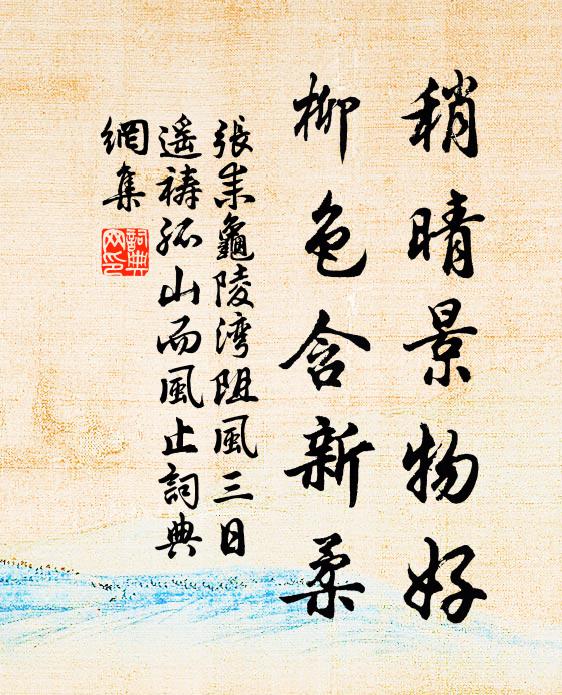 稍晴景物好
柳色含新柔
張耒龜陵灣阻風三日
遥禱孤山而風止詞典
網集
詞典
网印